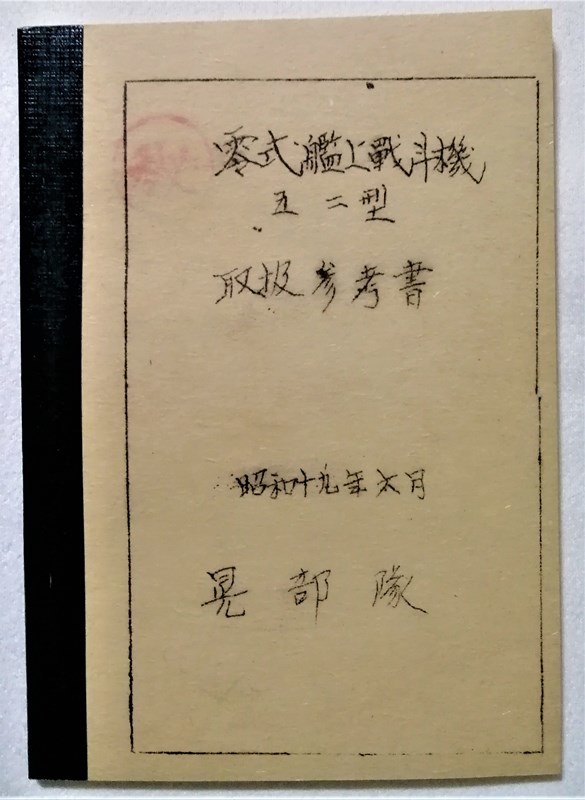 零式艦上戰斗機
五二型
取扱参考書
昭和十九年六月
晃部隊